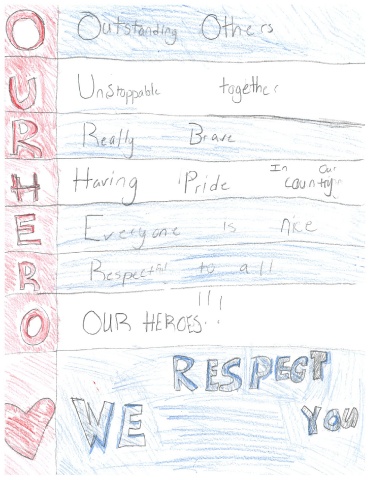 O Outstanding Others
U Unstoppable together
R Really Brave
H Having Pride In Our Country
E Everyone is nice
R Respectful to all
O OUR HEROES!!!
WE RESPECT YOU